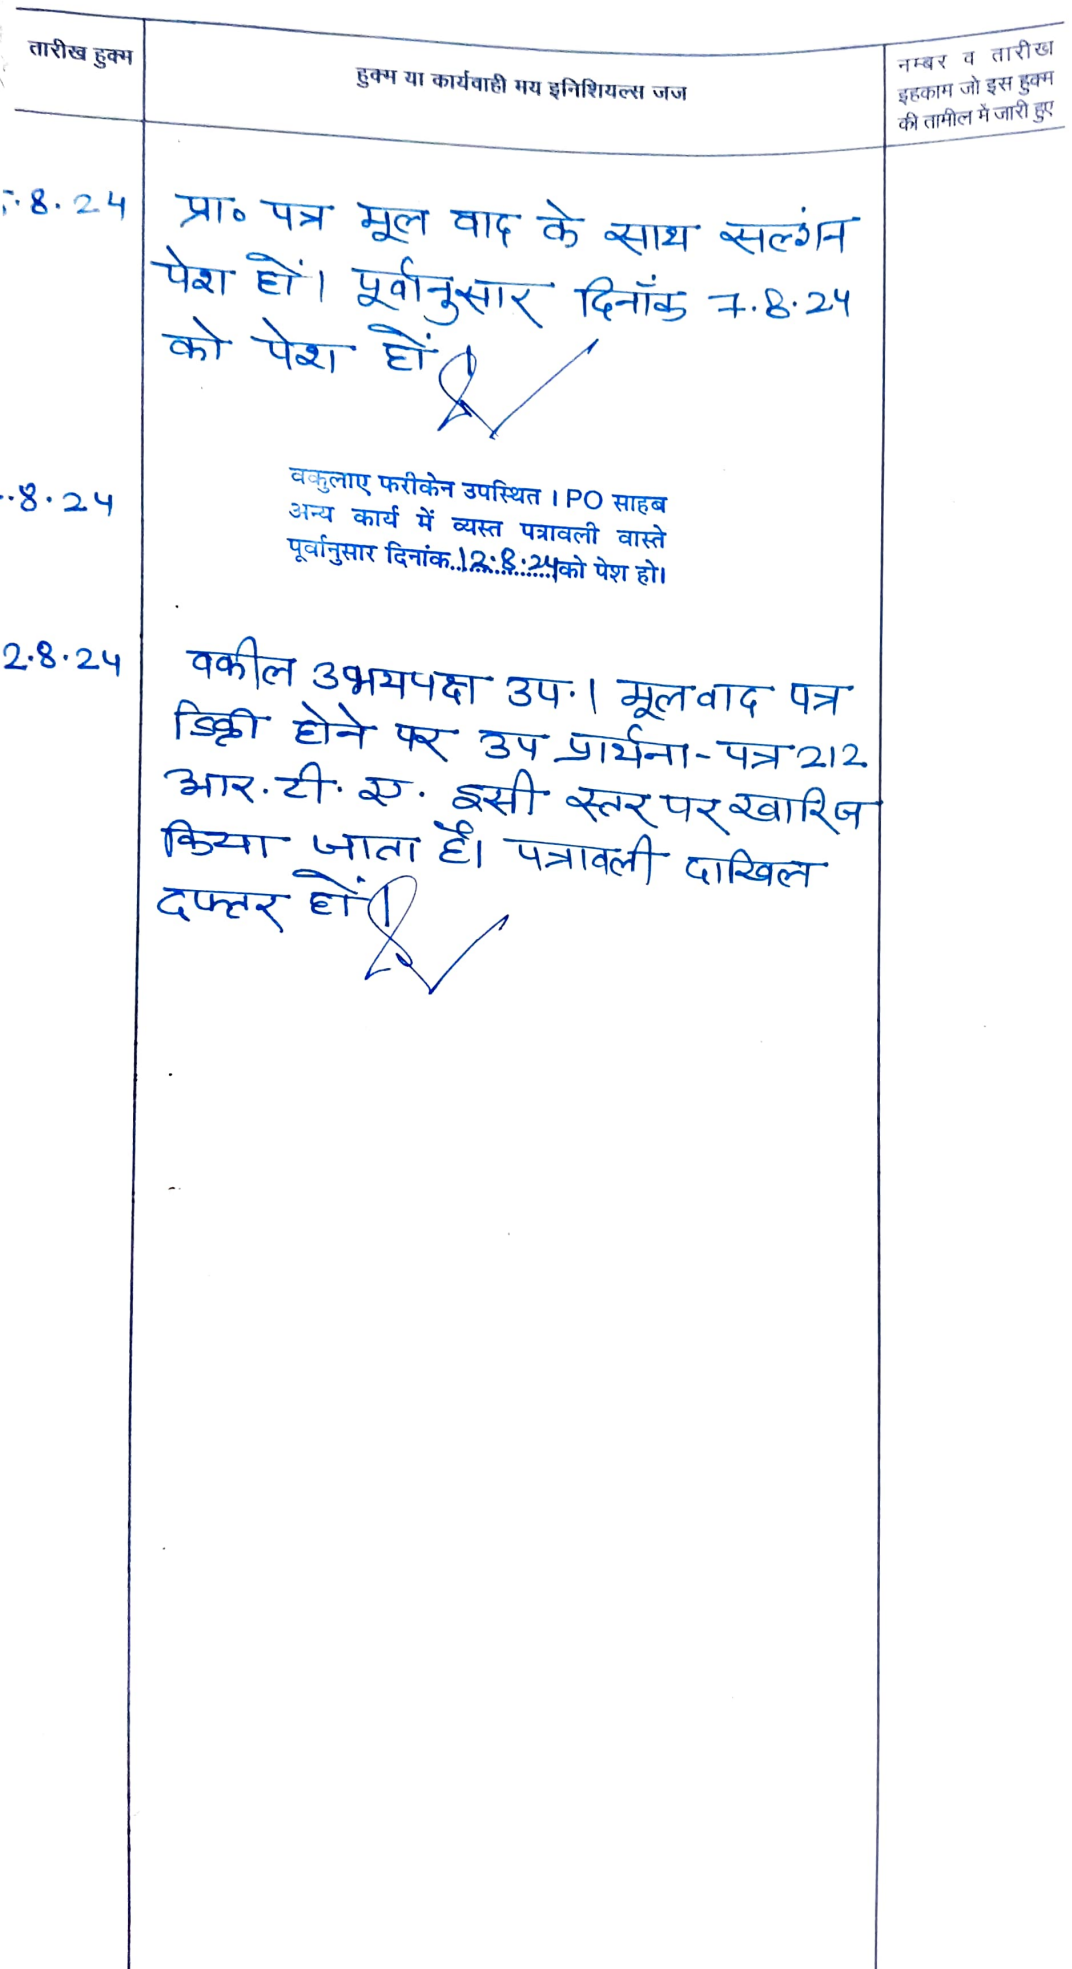 तारीख हुक्म
हुक्म या कार्यवाही मय इनिशियल्स जज
नम्बर व तारीख
इहकाम जो इस हुक्म
की तामील में जारी हुए
.8.24
प्रा० पत्र मूल वाद के साथ सल्गंन
पेश हों। पूर्वानुसार दिनाँक 7.8.24
को पेश हों
.8.24
वकुलाए फरीकेन उपस्थित । PO साहब
अन्य कार्य में व्यस्त पत्रावली वास्ते
पूर्वानुसार दिनांक..12.8.24..को पेश हो।
2.8.24
वकील उभयपक्ष उप.। मूलवाद पत्र
डिक्री होने पर उप प्रार्थना-पत्र 212
आर.टी.ए. इसी स्तर पर खारिज
किया जाता है। पत्रावली दाखिल
दफ्तर हों।